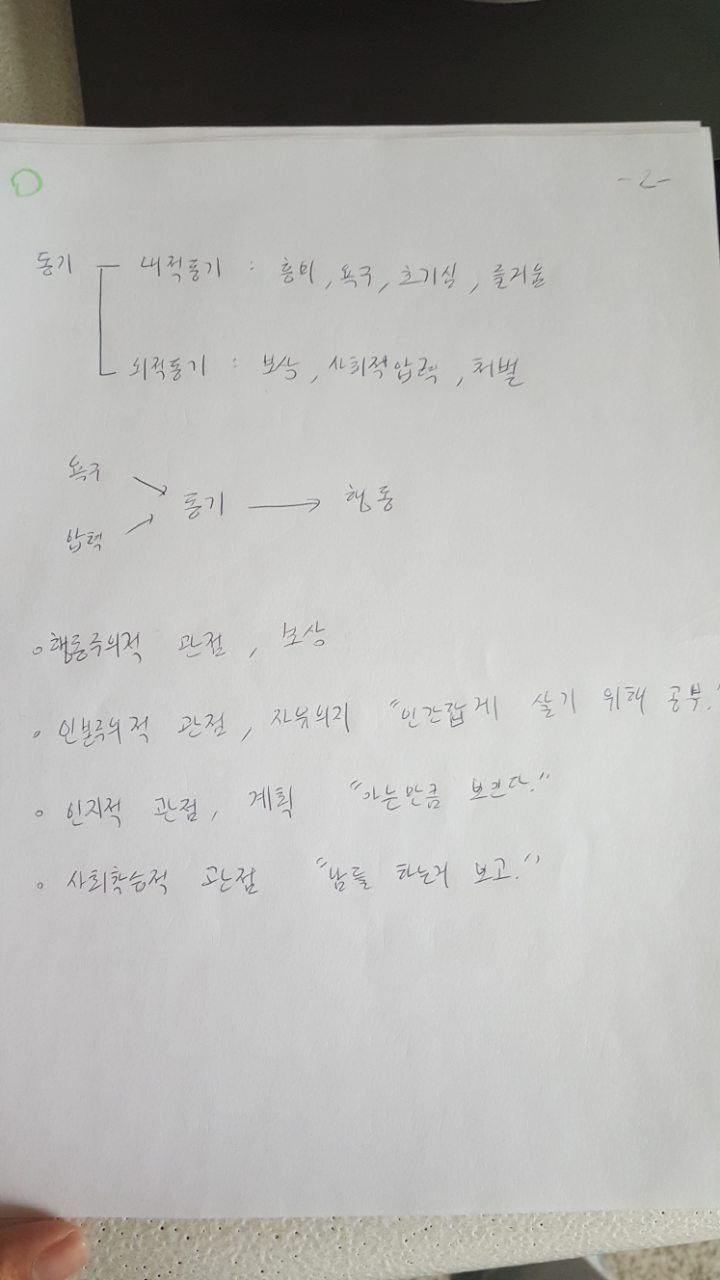 -2-
동기 내적동기 : 흥미, 욕구, 호기심, 즐거움
외적동기 : 보상, 사회적압력, 처벌
욕구
동기 → 행동
압력
행동주의적 관점, 보상
인본주의적 관점, 자유의지 "인간답게 살기 위해 공부."
인지적 관점, 계획 "아는만큼 보인다."
사회학습적 관점 "남들 하는거 보고."